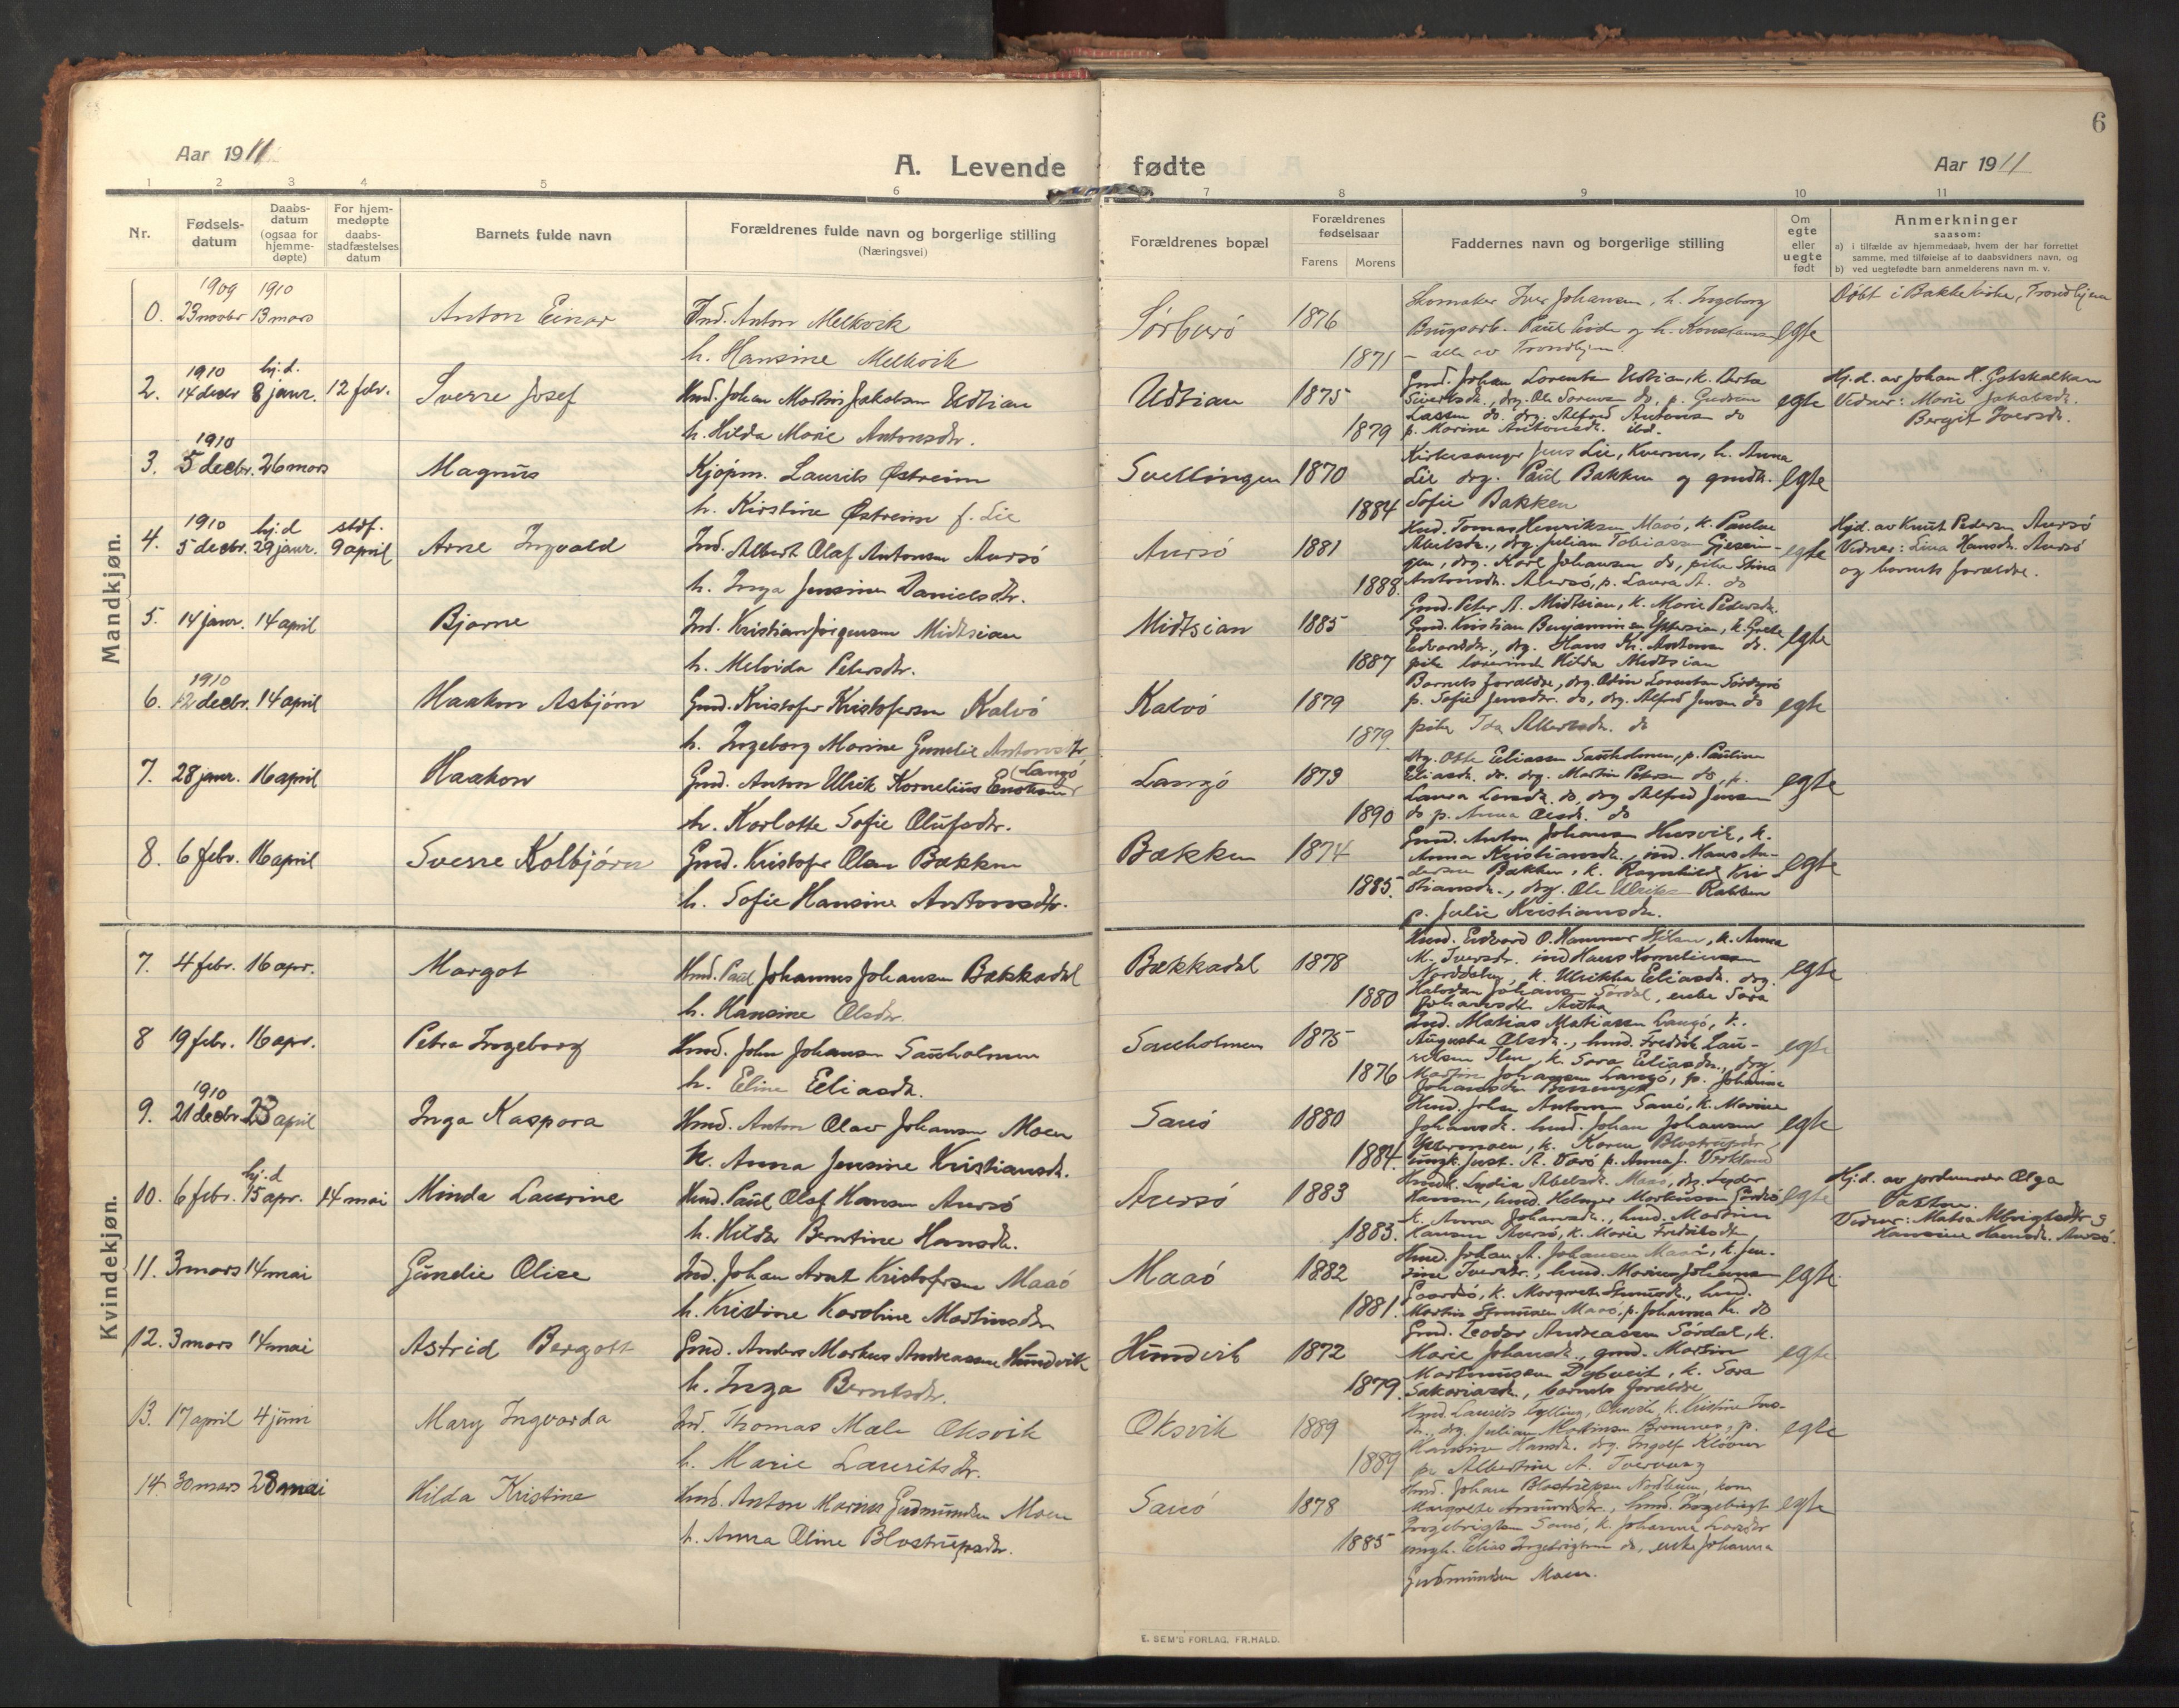 6
Aar 1911
A. Levende fødte
Aar 1911
1 2 3 4 5 6 7 8 9 10 11
Nr.
Fødsels-
datum
Daabs-
datum
(ogsaa for
hjemme-
døpte)
For hjem-
medøpte
daabs-
stadfæstelses
datum
Barnets fulde navn
Forældrenes fulde navn og borgerlige stilling
(Næringsvei)
Forældrenes bopæl
Forældrenes
fødselsaar
Farens Morens
Faddernes navn og borgerlige stilling
Om
egte
eller
uegte
født
Anmerkninger
saasom:
a) i tilfælde av hjemmedaab, hvem der har forrettet
samme, med tilføielse af to daabsvidners navn, og
b) ved uegtefødte barn anmelderens navn m. v.
Mandkjøn.
1909 1910
0. 23 novbr 13 mars Anton Einar Ind. Anton Melkvik
h. Hansine Melkvik
1876
1871
Skomaker Iver Johansen, h. Ingeborg
alle av Trondhjem.
egte
Døbt i Bakke kirke, Trondhjem
1910 hj.d.
2. 14 decbr 8 janr. 12 febr. Sverre Josef Hmd. Johan Martin Jakobsen Udtian
h. Hilda Marie Antonsdtr.
Udtian 1875
1879
Gmd. Johan Lorentsen Udtian, k. Berta
Lassen do. drg. Alfred Antonsen do
p. Marine Antonsdtr. ibd.
egte
Hj.d. av Johan H. Gotskalksen
Vidner: Marie Jakobsdtr.
Bergit Iversdtr.
1910
3. 5 decbr. 26 mars Magnus Kjøpm. Laurits Østreim
h. Kirstine Østreim f. Lie
Svellingen 1870
1884
Kirkesanger Jens Lie, Kvernes, h. Anna
Lie drg. Paul Bakken og gmdk.
Sofie Bakken
egte
1910 hj.d stdf.
4. 5 decbr. 29 janr. 9 april Arne Ingvald Ind. Albert Olaf Antonsen Aursø
h. Inga Jensine Danielsdtr.
Aursø 1881
1888.
Hmd. Tomas Henriksen Maaø, k. Paulae
Abelsdtr., drg. Julian Tobiassen Gjessin-
gen, drg. Karl Johansen do, pike Stina
Antonsdtr. Aursø, p. Laura A. do
egte
Hjd. av Knut Pedersen Aursø
Vidner: Lina Hansdtr. Aursø
og barnets forældre.
5. 14 janr. 14 april Bjarne Ind. Kristian Jørgensen Midtsian
h. Melvida Petersdtr.
Midtsian 1885
1887
Gmd. Peter A. Midtsian, k. Marie Pedersdtr.
Gmd. Kristian Benjaminsen Yttersian, k. Grete
Edvardsdtr., drg. Hans Kr. Antonsen do.
pike lærerinde Hilda Midtsian
egte
1910
6. 12 decbr. 14 april Haakon Asbjørn Gmd. Kristofer Kristofersen Kalvø
h. Ingeborg Marine Gunelie Antonsdtr
Kalvø 1879
1879.
Barnets forældre, drg. Odin Lorentsen
p. Sofie Jensdtr. do, drg. Alfred Jensen do
pike Ida Albertsdtr. do
egte
7. 28 janr. 16 april Haakon Gmd. Anton Ulrik Kornelius (Langø
h. Karlotte Sofie Olufsdtr.
Langø 1879
1890
drg. Otto Eliassen Sauholmen, p. Pauline
Eliasdtr. do. drg. Martin Petersen do, p.
Laura Larsdtr. do, drg Alfred Jensen
do p. Anna Olsdtr. do
egte
8. 6 febr. 16 april Sverre Kolbjørn Gmd. Kristofer Olsen Bækken
h. Sofie Hansine Antonsdtr.
Bækken 1874
1885.
Gmd. Anton Johansen Husvik, k.
Anna Kristiansdtr., ind. Hans An-
dersen Bækken, k. Ragnhild Kri-
stiansdtr., drg. Ole Ulriksen Rabben
p. Julie Kristiansdtr.
egte
Kvindekjøn.
7. 4 febr. 16 apr. Margot Hmd. Paul Johannes Johansen Bækkadal
h. Hansine Olsdtr.
Bækkadal 1878
1880
Hmd. Edvard O. Hammer k. Anna
M. Iversdtr. ind Hans Korneliussen
Norddalen, k. Ulrikka Eliasdtr. drg.
Halvdan Johansen Sørdal, enke Sara
egte
8 19 febr. 16 apr. Petra Ingeborg Hmd. John Johansen Sauholmen
h. Eline Eliasdtr.
Sauholmen 1875
1876
Ind. Matias Matiassen Langø, k.
Augusta Olsdtr., hmd. Fredrik Lau-
ritsen k. Sara Eliasdtr., drg.
Martin Johansen Langø, p. Johanne
egte
1910
9. 21 decbr. 23 april Inga Kaspara Hmd. Anton Olav Johansen Moen
k. Anna Jensine Kristiansdtr.
Sauø 1880
1884.
Hmd. Johan Antonsen Sauø, k. Marine
Johansdtr. hmd. Johan Johansen
Yttermoen, k. Karen Blostrupsdtr,
ungk. Just. A. Varø p. Anna J.
egte
hj.d
10. 6 febr. 15 apr. 14 mai Minda Laurine Hmd. Paul Olaf Hansen Aursø
h. Hilda Berntine Hansdtr.
Aursø 1883
1883.
Lydia Abelsdtr. Maaø, drg. Peder
Hansen, hmd. Holmger Markussen
k. Anna Johansdtr., hmd. Martin
Hansen Aursø, k. Marie Fredriksdtr
egte
Hj.d. av jordmoder Olga
Vidner: Matea Albrigtsdtr
Hansine Hansdtr. Aursø.
11. 3 mars 14 mai Gunelie Olise Ind. Johan Arnt Kristofersen Maaø
h. Kristine Karoline Martinsdtr
Maaø 1882
1881.
Hmd. Johan A. Johansen Maaø, k. Jen-
sine Iversdtr., hmd. Marius Johansen
k. Margrete
Martin Maaø. p. Johanna Kr. do
egte
12. 3 mars 14 mai Astrid Bergott Gmd. Anders Markus Andreassen Hundvik
h. Inga Berntsdtr.
Hundvik 1872
1879.
Gmd. Teodor Andreassen Sørdal, k.
Marie Johansdtr., gmd. Martin
Martinussen Dybveit, k. Sara
Sakariasdtr., barnets forældre
egte
13. 17 april 4 juni Mary Ingvarda Ind. Thomas Male Oksvik
h. Marie Lauritsdtr.
Oksvik 1889
1889
Hmd. Laurits Oksvik, k. Kristine
drg. Julian Martinsen p.
Hansine Hansdtr. drg. Ingolf
p. Albertine A.
egte
14. 30 mars 28 mai Hilda Kristine Hmd. Anton Marius Gudmundsen Moen
h. Anna Oline Blostrupsdtr.
Sauø 1878
1885
Hmd. Johan Blostrupsen kone
Margrete hmd. Ingebrigt
Ingebrigtsen Sauø, k. Johanna Larsdtr
ungk. Elias Ingebrigtsen do, enke Johanna
Gudmundsen Moen.
egte
E. SEM'S FORLAG, FR.HALD.